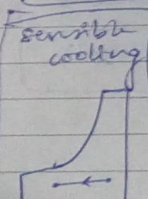 sensible
cooling